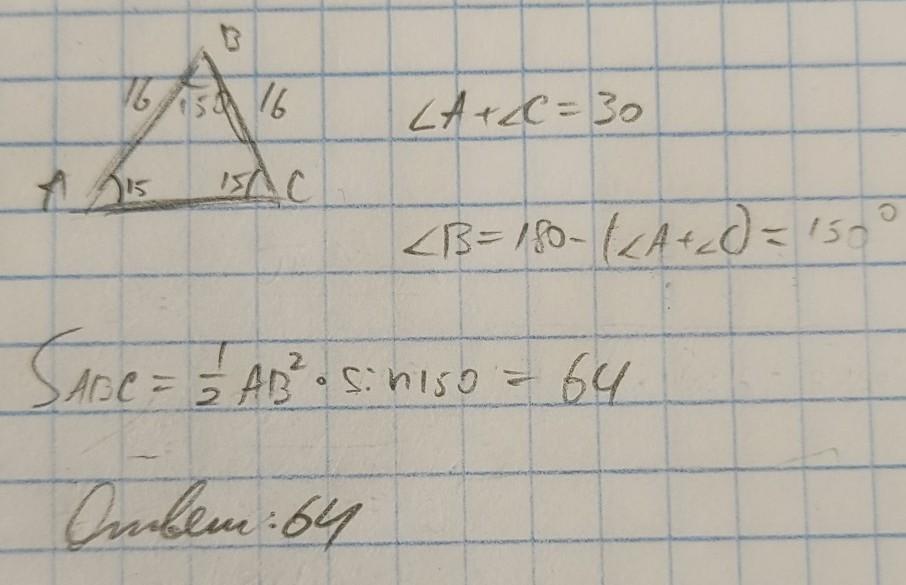 B
16 150 16
A 15 15 C
∠A+∠C=30
∠B=180-(∠A+∠C)=150°
S ABC = 1/2 AB² · sin150 = 64
Ответ: 64